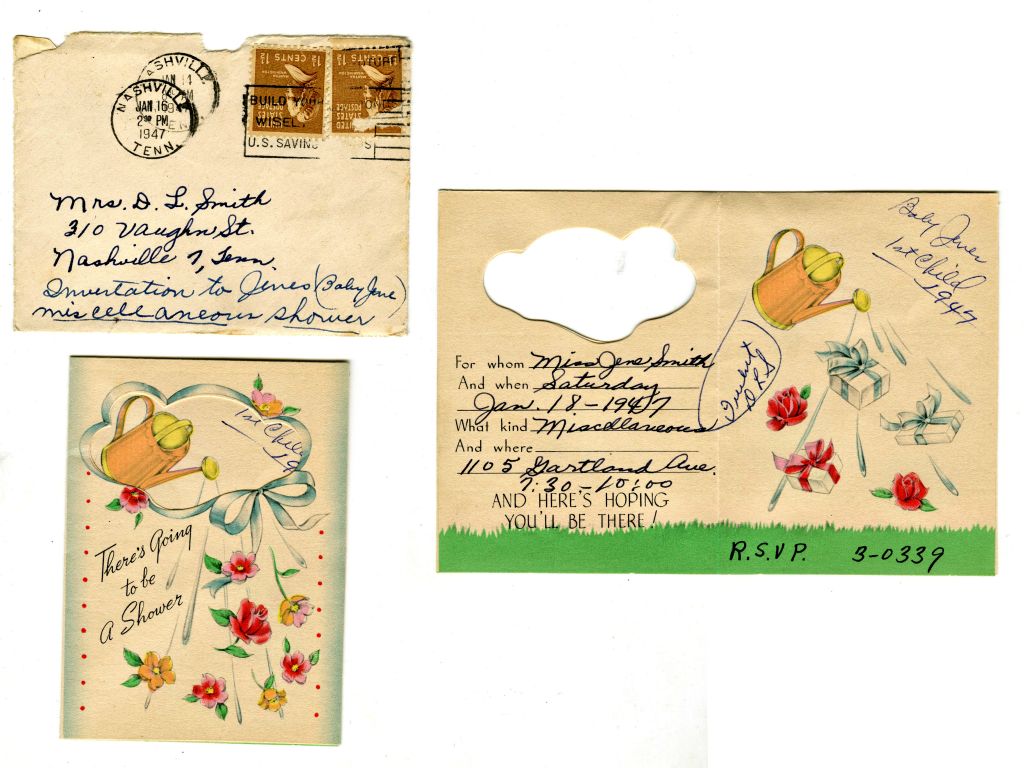 NASHVILLE
JAN 14
TENN.
NASHVILLE
JAN 16
2 30 PM
1947
TENN.
1½ CENTS 1½
1½ CENTS 1½
BUILD YOUR
WISEL
U.S. SAVIN
Mrs. D. L. Smith
310 Vaughn St.
Nashville 7, Tenn.
Invertation to Jenes (Baby Jene)
miscellaneous shower
1st Child
19
There's Going
to be
A Shower
Baby Jenes
1st Child
1947
For whom Miss Jene Smith
And when Saturday
Jan. 18-1947
What kind Miscellaneous
And where
1105 Gartland Ave.
7:30-10:00
AND HERE'S HOPING
YOU'LL BE THERE!
DLS
R.S.V.P. 3-0339